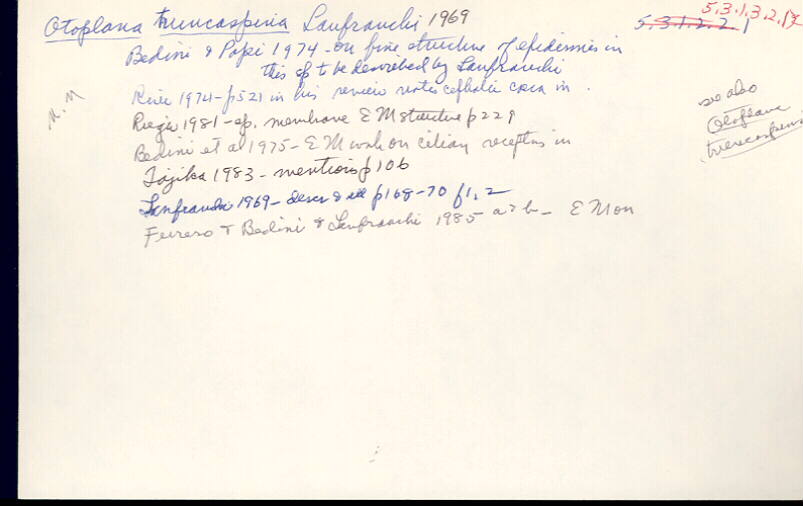 Otoplana truncaspina Lanfranchi 1969
5.3.1.3.2.13
5.3.1.2.2.1
Bedini & Papi 1974 - on fine structure of epidermis in
this sp to be described by Lanfranchi
see also
Otoplana
truncaspina
N.N
1974 - p521 in his review notes cephalic in .
Rieger 1981 - ep. membrane EM structure p 229
Bedini et al 1975 - EM work on ciliary receptors in
Tajika 1983 - mentions p 106
Lanfranchi 1969 - descr & ill p168-70 f1,2
Ferrero & Bedini & Lanfranchi 1985 a & b - EM on